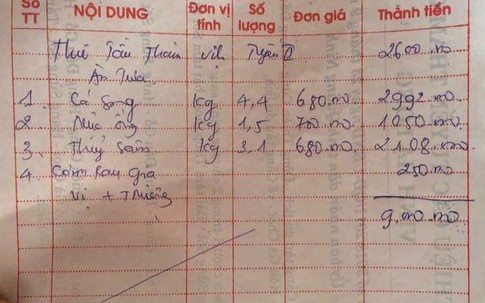 Số TT NỘI DUNG Đơn vị tính Số lượng Đơn giá Thành tiền
Thuê Tầu Thăm Vịnh Tuyến II 2600.000
Ăn Trưa
1 Cá Song kg 4,4 680.000 2992.000
2 kg 1,5 700.000 1050.000
3 kg 3,1 680.000 2108.000
4 Cơm Rau Gia 250.000
Vị +
9.000.000